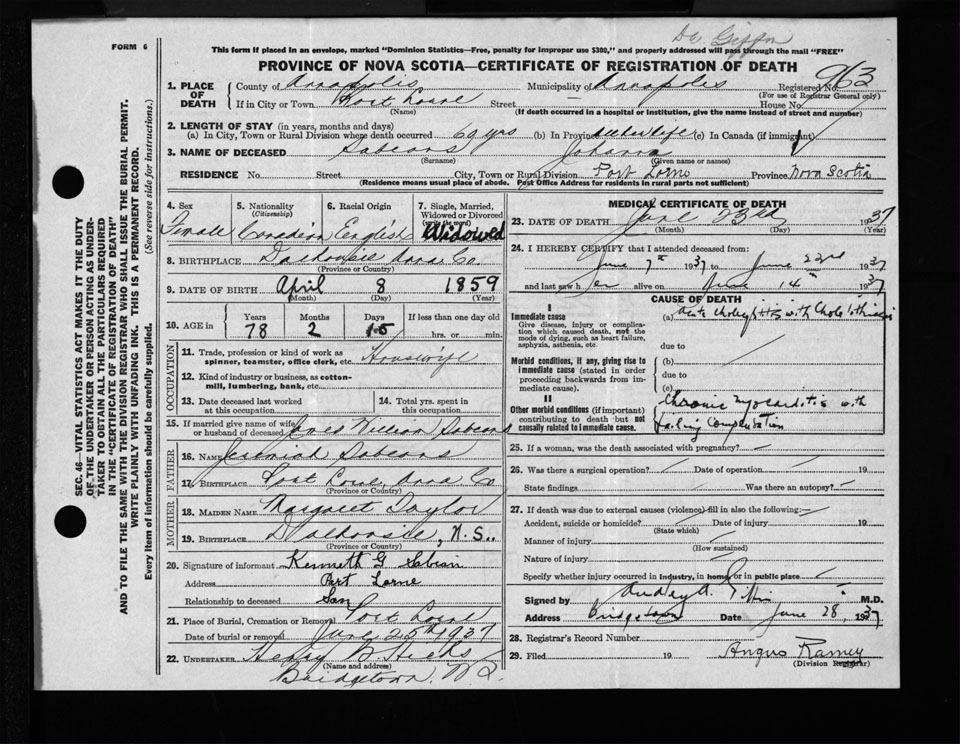 De Giffin
FORM 6
This form if placed in an envelope, marked "Dominion Statistics—Free, penalty for improper use $300," and properly addressed will pass through the mail "FREE"
PROVINCE OF NOVA SCOTIA—CERTIFICATE OF REGISTRATION OF DEATH
963
1. PLACE OF DEATH County of Annapolis Municipality of Annapolis Registered No.
(For use of Registrar General only)
If in City or Town Port Lorne Street House No.
(Name) (If death occurred in a hospital or institution, give the name instead of street and number)
2. LENGTH OF STAY (in years, months and days)
(a) In City, Town or Rural Division where death occurred 69 yrs (b) In Province life (c) In Canada (if immigrant)
3. NAME OF DECEASED Sabeans Johanna
(Surname) (Given name or names)
RESIDENCE No. Street City, Town or Rural Division Port Lorne Province Nova Scotia
(Residence means usual place of abode. Post Office Address for residents in rural parts not sufficient)
4. Sex 5. Nationality (Citizenship) 6. Racial Origin 7. Single, Married, Widowed or Divorced (write the word)
Female Canadian English Widowed
8. BIRTHPLACE Dalhousie Anna Co.
(Province or Country)
9. DATE OF BIRTH April 8 1859
(Month) (Day) (Year)
10. AGE in Years Months Days If less than one day old
78 2 15 hrs. or min.
OCCUPATION
11. Trade, profession or kind of work as spinner, teamster, office clerk, etc. Housewife
12. Kind of industry or business, as cotton-mill, lumbering, bank, etc.
13. Date deceased last worked at this occupation 14. Total yrs. spent in this occupation
15. If married give name of wife or husband of deceased William Sabeans
FATHER
16. NAME Jeremiah Sabeans
17. BIRTHPLACE Port Lorne, Anna Co
(Province or Country)
MOTHER
18. MAIDEN NAME Margaret Saylor
19. BIRTHPLACE Dalhousie, N.S.
(Province or Country)
20. Signature of informant Kenneth G Sabian
Address Port Lorne
Relationship to deceased Son
21. Place of Burial, Cremation or Removal Port Lorne
Date of burial or removal June 25th 1937
22. UNDERTAKER B Hicks
(Name and address)
Bridgetown, N.S.
MEDICAL CERTIFICATE OF DEATH
23. DATE OF DEATH June 23rd 1937
(Month) (Day) (Year)
24. I HEREBY CERTIFY that I attended deceased from:
June 7th 1937 to June 22nd 1937
and last saw her alive on June 14 1937
CAUSE OF DEATH
I
Immediate cause (a) Acute with Cholelithiasis
Give disease, injury or complication which caused death, not the mode of dying, such as heart failure, asphyxia, asthenia, etc.
due to
Morbid conditions, if any, giving rise to immediate cause (stated in order proceeding backwards from immediate cause). (b)
due to
(c)
II
Other morbid conditions (if important) contributing to death but not causally related to immediate cause.
Chronic myocarditis with
failing compensation
25. If a woman, was the death associated with pregnancy?
26. Was there a surgical operation? Date of operation 19
State findings Was there an autopsy?
27. If death was due to external causes (violence) fill in also the following:—
Accident, suicide or homicide? Date of injury 19
(State which)
Manner of injury
(How sustained)
Nature of injury
Specify whether injury occurred in industry, in home, or in public place
Signed by M.D.
Address Bridgetown Date June 28, 1937
28. Registrar's Record Number
29. Filed 19 Angus Ramey
(Division Registrar)
SEC. 46—VITAL STATISTICS ACT MAKES IT THE DUTY
OF THE UNDERTAKER OR PERSON ACTING AS UNDER-
TAKER TO OBTAIN ALL THE PARTICULARS REQUIRED
IN THE "CERTIFICATE OF REGISTRATION OF DEATH"
AND TO FILE THE SAME WITH THE DIVISION REGISTRAR WHO SHALL ISSUE THE BURIAL PERMIT.
WRITE PLAINLY WITH UNFADING INK. THIS IS A PERMANENT RECORD.
Every item of information should be carefully supplied. (See reverse side for instructions.)